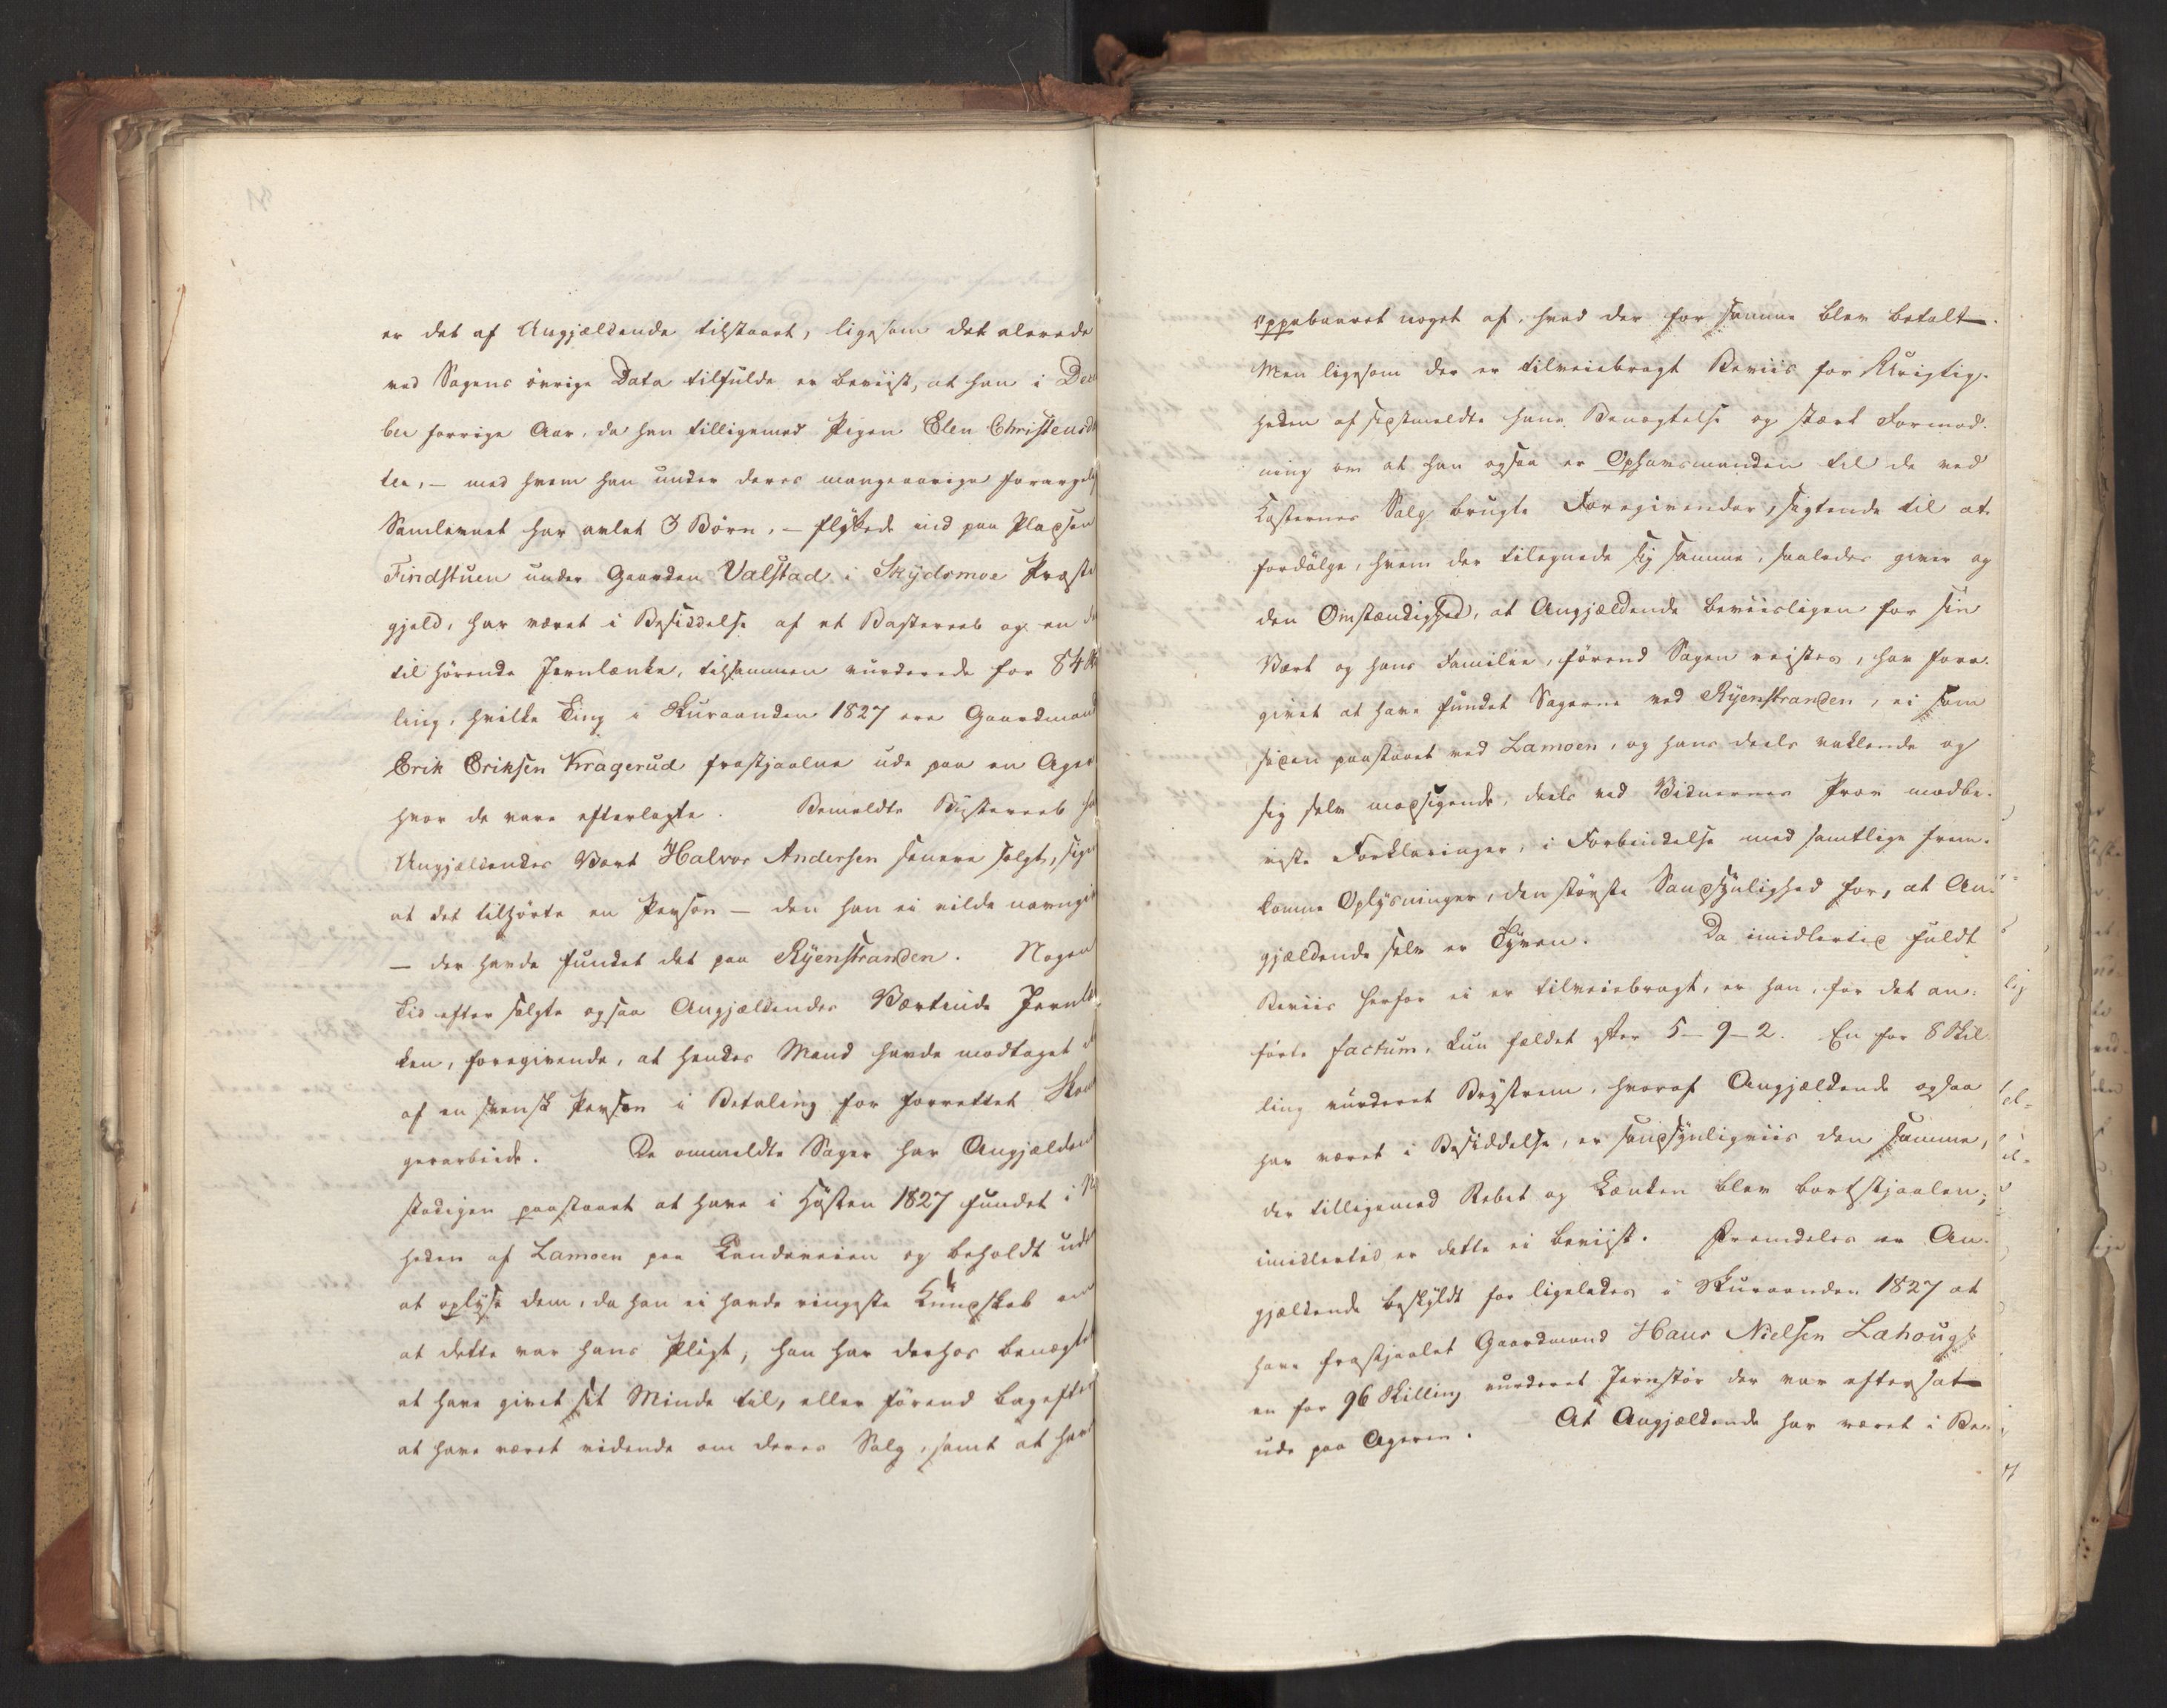 er det af Angjældende tilstaaet, ligesom det alerede
ved Sagens övrige Data tilfulde er beviist, at han i Dec
ber forrige Aar, da han tilligemed Pigen Elen Christensd
ter, – med hvem han under deres mangeaarige forargel
Samlevnet har avlet 3 Börn, – flyttede ind paa Pladsen
Findstuen under Gaarden Valstad i Skydsmoe Præste
gjeld, har været i Besiddelse af et Basterreeb og en d
til hörende Jernlænke, tilsammen vurderede for 84
ling, hvilke Ting i Skuraanden 1827 ere Gaardmand
Erik Eriksen Kragerud frastjaalne ude paa en Ager
hvor de vare efterlagte. Bemeldte Basterreeb ha
Angjældendes Vært Halvor Andersen senere solgt, sige
at det tilhörte en Person – den han ei vilde navngi
– der havde fundet det paa Ryenstranden. Nogen
Tid efter solgte ogsaa Angjældendes Værtinde Jernl
ken, foregivende, at hendes Mand havde modtaget d
af en svensk Person i Betaling for forrettet Sko
gerarbeide. De ommeldte Sager har Angjælden
stadigen paastaaet at have i Hösten 1827 fundet i N
heden af Lamoen paa Landeveien og beholdt ude
at oplyse dem, da han ei havde ringeste Kundskab om
at dette var hans Pligt, han har derhos benægte
at have givet sit Minde til, eller förend bagefter
at have været vidende om deres Salg, samt at have
oppebaaret noget af, hvad der for samme blev betalt.
Men ligesom der er tilveiebragt Beviis for Urigtig-
heden af sidstmeldte hans Benægtelse og stærk Formod-
ning om at han ogsaa er Ophavsmanden til de ved
Kosternes Salg brugte Foregivender, sigtende til at
fordölge, hvem der tilegnede sig samme, saaledes giver og
den Omstændighed, at Angjældende beviisligen for sin
Vært og hans Familie, förend Sagen reistes, har fore-
givet at have fundet Sagerne ved Ryenstranden, ei som
siden paastaaet ved Lamoen, og hans deels vaklende og
sig selv modsigende, deels ved Vidnernes Prov modbe-
viste Forklaringer, i Forbindelse med samtlige frem-
komne Oplysninger, den störste Sandsynlighed for, at An-
gjældende selv er Tyven. Da imidlertid fuldt
Beviis herfor ei er tilveiebragt, er han, for det an-
förte factum, kun fældet efter 5–9–2. En for 8 Skil
ling vurderet Brystrem, hvoraf Angjældende ogsaa
har været i Besiddelse, er sandsynligviis den samme,
der tilligemed Rebet og Lænken blev bortstjaalen;
imidlertid er dette ei beviist. Fremdeles er An-
gjældende beskyldt for ligeledes i Skuraanden 1827 at
have frastjaalet Gaardmand Hans Nielsen Lahoug
en for 96 Skilling vurderet Jernstör der var eftersat
ude paa Ageren. At Angjældende har været i Be-